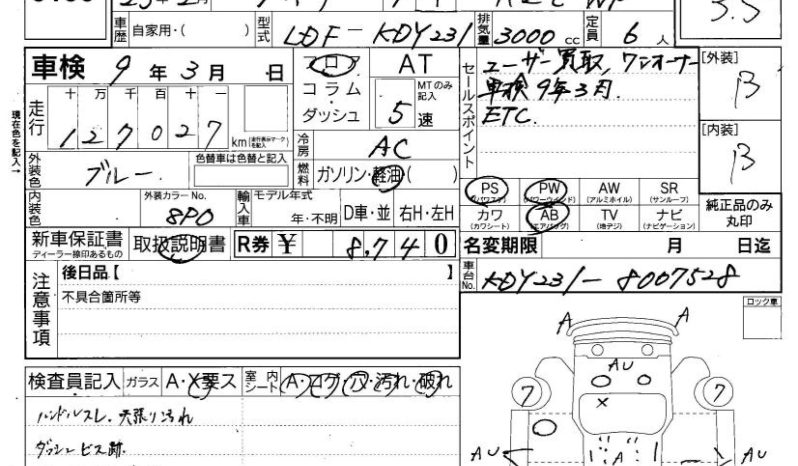 車歴 自家用・( ) 型式 LDF-KDY231 排気量 3000 cc 定員 6 人
3.5
車検 9年3月 日
フロア コラム・ダッシュ AT MTのみ記入 5速
セールスポイント
ユーザー買取、ワンオーナー
車検9年3月.
ETC.
[外装] B
現在色を記入→
走行 十万千百十一 127027 km(走行表示マークを記入)
冷房 AC
[内装] B
外装色 ブルー 色替車は色替と記入
燃料 ガソリン・軽油( )
内装色 外装カラーNo. 8P0 輸入車 モデル年式 年・不明 D車・並 右H・左H
PS (パワステ) PW (パワーウィンドウ) AW (アルミホイル) SR (サンルーフ)
カワ (カワシート) AB (エアバッグ) TV (地デジ) ナビ (ナビゲーション)
純正品のみ丸印
新車保証書 ディーラー線印あるもの 取扱説明書 R券 ¥ 8,740
名変期限 月 日迄
注意事項 後日品【 】
不具合箇所等
車台No. KDY231-8007528
ロック車
検査員記入 ガラス A・X要ス 室内シート A・コゲ・穴・汚れ・破れ
ハンドルスレ、天張り汚れ
ダッシュビス跡.
A A
AU
7 7
X
AU A AU